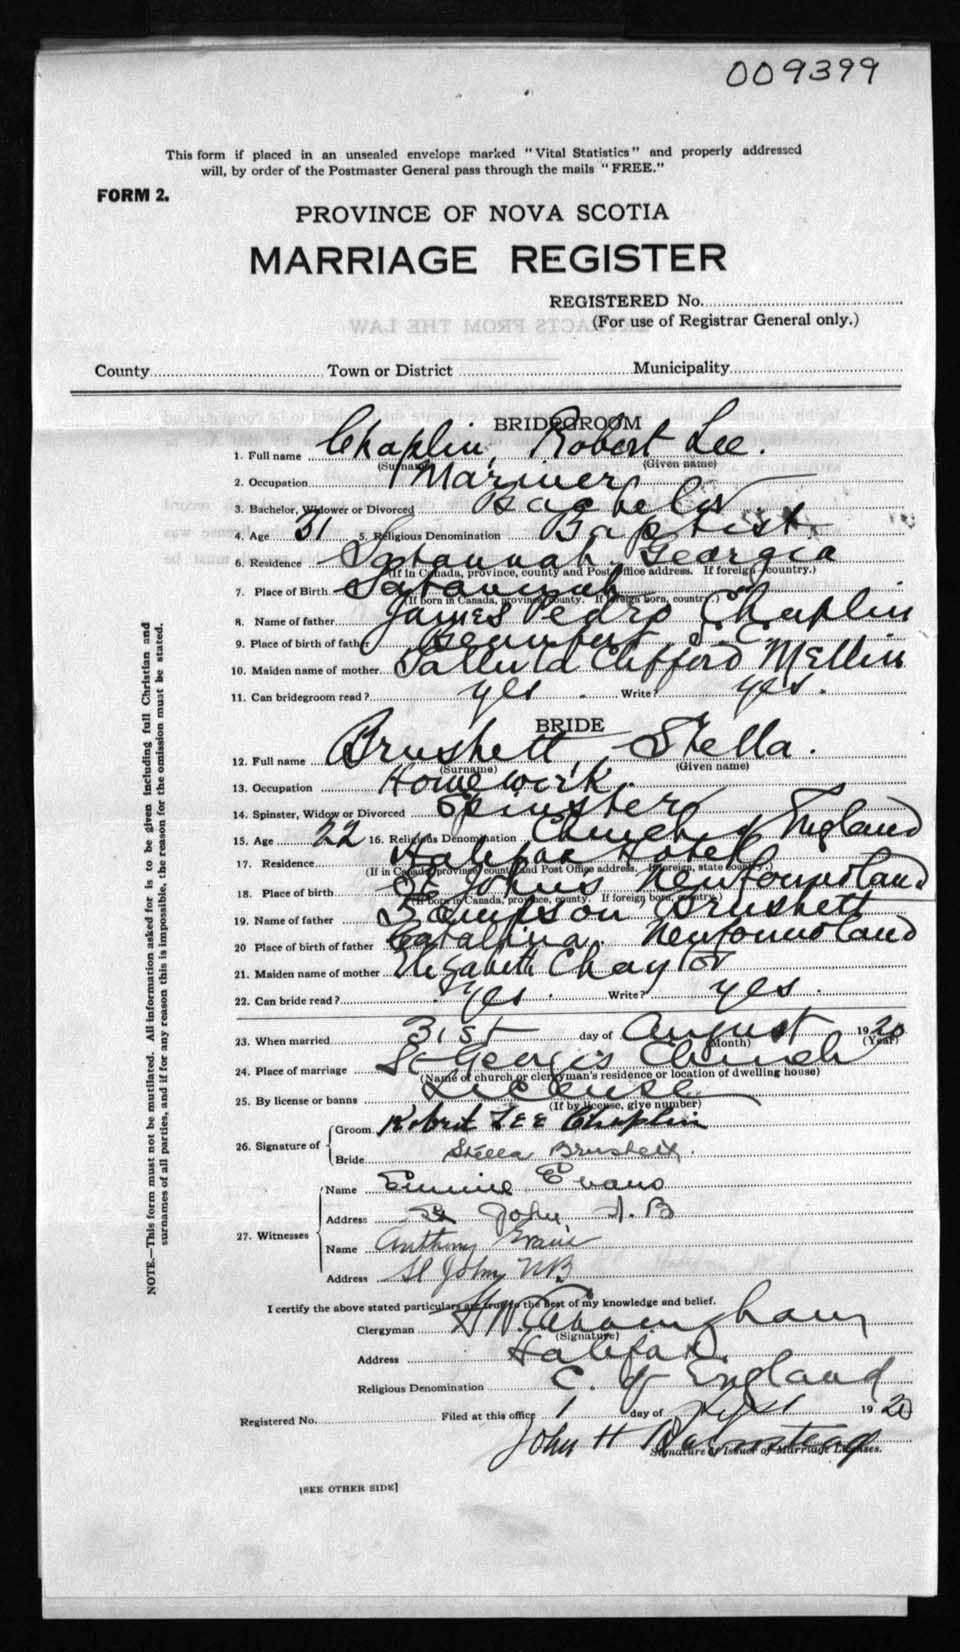 009399
This form if placed in an unsealed envelope marked "Vital Statistics" and properly addressed
will, by order of the Postmaster General pass through the mails "FREE."
FORM 2.
PROVINCE OF NOVA SCOTIA
MARRIAGE REGISTER
REGISTERED No.
(For use of Registrar General only.)
County Town or District Municipality
BRIDEGROOM
1. Full name Chaplin, Robert Lee.
(Surname) (Given name)
2. Occupation Mariner
3. Bachelor, Widower or Divorced Bachelor
4. Age 31 5. Religious Denomination Baptist
6. Residence Savannah Georgia
(If in Canada, province, county and Post Office address. If foreign country.)
7. Place of Birth Savannah
(If born in Canada, province, county. If foreign born, country.)
8. Name of father James Pedro Chaplin
9. Place of birth of father Beaufort S.C.
10. Maiden name of mother Clifford Mellin
11. Can bridegroom read? yes. Write? yes.
BRIDE
12. Full name Brushett Stella.
(Surname) (Given name)
13. Occupation Homework.
14. Spinster, Widow or Divorced Spinster
15. Age 22 16. Religious Denomination Church of England
17. Residence Halifax Hotel
(If in Canada, province, county and Post Office address. If foreign, state country.)
18. Place of birth St Johns Newfoundland
(If born in Canada, province, county. If foreign born, country.)
19. Name of father Sampson Brushett
20 Place of birth of father Catalina. Newfoundland
21. Maiden name of mother Elizabeth Chaytor
22. Can bride read? yes. Write? yes.
23. When married 31st day of August 1920
(Month) (Year)
24. Place of marriage St George's Church
(Name of church or clergyman's residence or location of dwelling house)
25. By license or banns License
(If by license, give number)
26. Signature of
Groom Robert LEE Chaplin
Bride Stella Brushett.
27. Witnesses
Name Emmie Evans
Address St John, N.B
Name Anthony
Address St John NB
I certify the above stated particulars are true to the best of my knowledge and belief.
Clergyman H W Cunningham
(Signature)
Address Halifax.
Religious Denomination C. of England
Registered No. Filed at this office 1 day of Sept 1920
John H
Signature of Issuer of Marriage Licenses.
[SEE OTHER SIDE]
NOTE.—This form must not be mutilated. All information asked for is to be given including full Christian and
surnames of all parties, and if for any reason this is impossible, the reason for the omission must be stated.